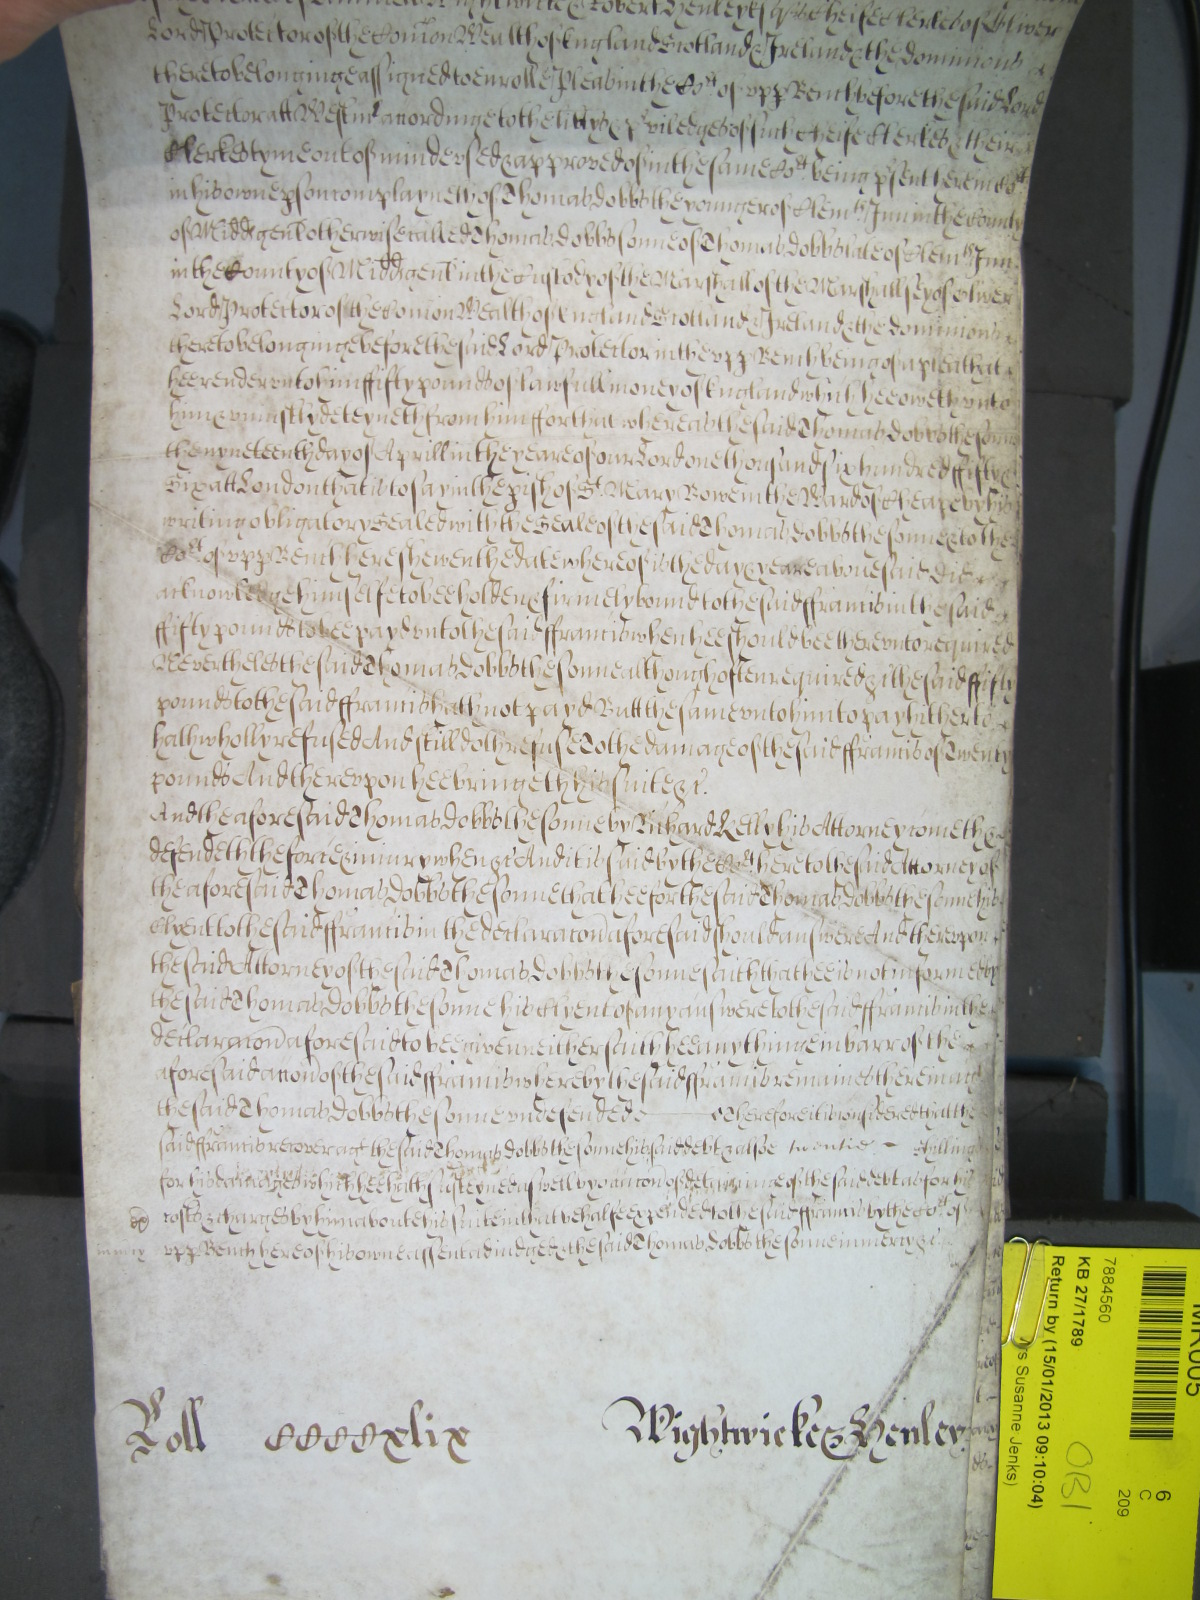 Robert Henley Esqrs cheife Clerkes of Oliver
Lord Protector of the Comon Wealth of England Scotland & Ireland & the dominions
thereto belonginge assigned to enrolle Pleas in the Cort of vpp Bench before the said Lord
Protector att Westmr accordinge to the libtyes & priviledges of such cheife Clerkes & their
Clerkes tyme out of minde vsed & approved of in the same Cort being psent there in Cort
in his owne pson complayneth of Thomas Dobbs the younger of Clemts Inn in the County
of Midd gent otherwise called Thomas Dobbs sonne of Thomas Dobbs late of Clemts Inn
in the County of Midd gent in the Custody of the Marshall of the Marshallsey of Oliver
Lord Protector of the Comon Wealth of England Scotland & Ireland & the dominions
thereto belonginge before the said Lord Protector in the vpp Bench being of a plea that
hee render vnto him ffifty pounds of lawfull money of England which hee oweth vnto
him & vniustly deteyneth from him ffor that whereas the said Thomas Dobbs the sonne
the nyneteenth day of Aprill in the yeare of our Lord one thousand six hundred ffifty &
Six att London that is to say in the pish of St Mary Bowe in the Ward of Cheape by his
writing obligatory Sealed with the Seale of the said Thomas Dobbs the sonne & to the
Cort of vpp Bench here shewen the date whereof is the day & yeare aboue said did
acknowledge himselfe to bee holden & firmely bound to the said ffrancis in the said
ffifty pounds to bee payd vnto the said ffrancis when hee should bee therevnto required
Neverthelés the said Thomas Dobbs the sonne although often required &c the said ffifty
pounds to the said ffrancis hath not payd Butt the same vnto him to pay hitherto
hath wholly refused And still doth refuse To the damage of the said ffrancis of Twenty
pounds And therevpon hee bringeth his suite &c.
And the aforesaid Thomas Dobbs the sonne by Richard Kelly his Attorney cometh &
defendeth the force & iniury when &c And it is said by the Cort here to the said Attorney of
the aforesaid Thomas Dobbs the sonne that hee for the said Thomas Dobbs the sonne his
Clyent to the said ffrancis in the declaracon aforesaid should answere And therevpon
the said Attorney of the said Thomas Dobbs the sonne saith that hee is not informed by
the said Thomas Dobbs the sonne his Clyent of any answere to the said ffrancis in the
declaracon aforesaid to bee given neither saith hee any thing in barr of the
aforesaid accon of the said ffrancis whereby the said ffrancis remaines therein agt
the said Thomas Dobbs the sonne vndefended &c Therefore it is considered that the
said ffrancis recover agt the said Thomas Dobbs the sonne his said debt & alsoe twentie shillings
for his damages which hee hath susteyned aswell by occacon of deteyninge of the said debt as for his
costs & charges by him aboute his suite in that behalfe expended to the said ffrancis by the Cort of
vpp Bench here of his owne assent adiudged & the said Thomas Dobbs the sonne in mercy &c
Roll ccccxlix Wightwicke & Henley
7884560
KB 27/1789
Return by (15/01/2013 09:10:04)
s Susanne Jenks)
6
C
209